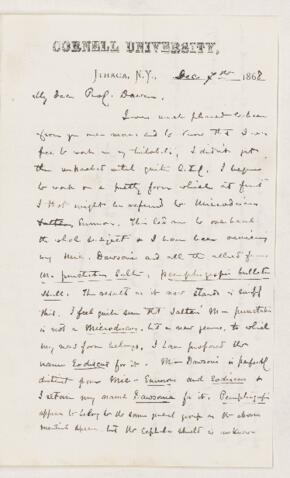 CORNELL UNIVERSITY,
ITHACA, N.Y., Dec 7th 1868
My Dear Prof. Dawson
I was much pleased to hear
from you once more and to know that I was
free to work on my trilobites, I didn't get
them unpacked until quite I began
to work on a pretty form which at first
I thought might be referred to Microdiscus
Emmons. This led me to overhaul
the whole subject & I have been
my Mic. Dawsoni and all the allied forms
M. punctatus Salter,
The results as it now stands is
this. I feel quite sure that Salter's M. punctatus
is not a Microdiscus, but a new genus, to which
my new form belongs, I have proposed the
name Eodiscus for it. Mic Dawsoni is perfectly
distinct from Mic Emmons and Eodiscus &
I retain my name Dawsonia for it.
appear to belong to the same general group as the above
mentioned but the cephalic shield is unknown